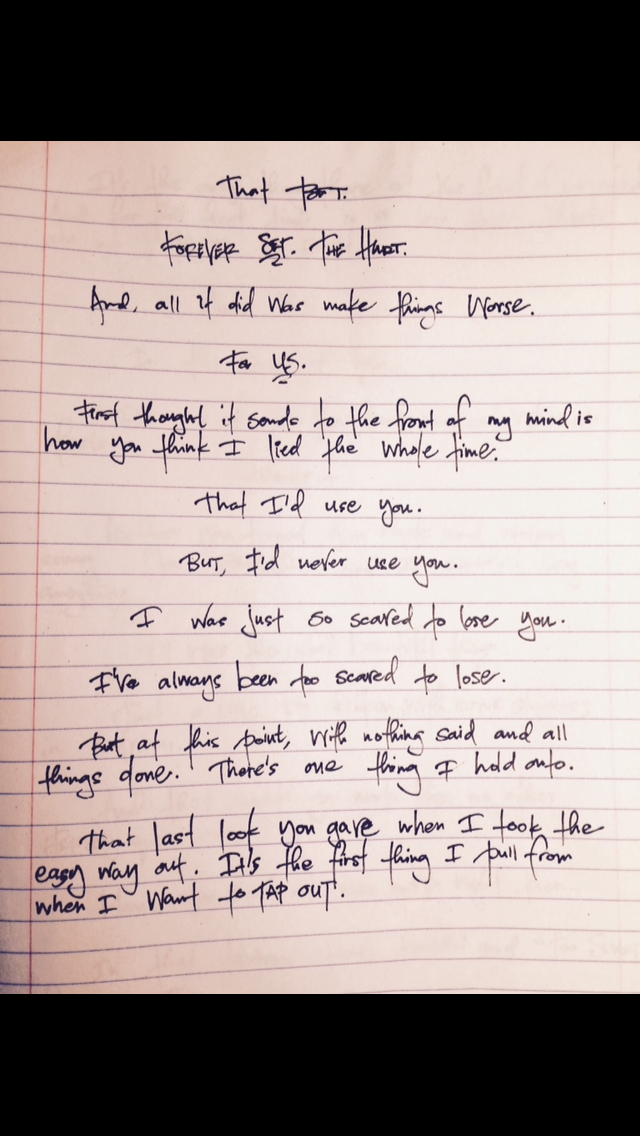 That
FOREVER SET. THE HUNT.
And, all it did was make things Worse.
For US.
First thought it sends to the front of my mind is
how you think I lied the whole time.
That I'd use you.
But, I'd never use you.
I was just so scared to lose you.
I've always been too scared to lose.
But at this point, With nothing said and all
things done. There's one thing I hold onto.
That last look you gave when I took the
easy way out. It's the first thing I pull from
when I Want to TAP OUT.